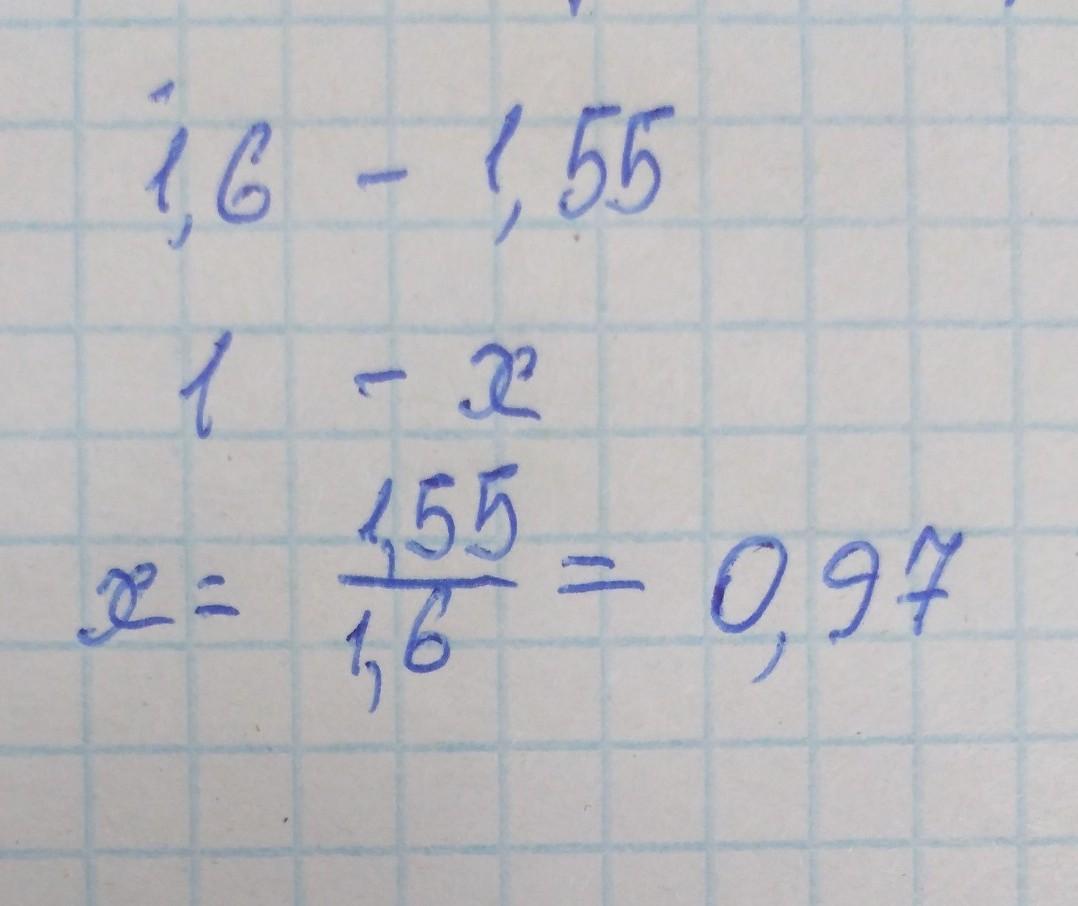 1,6 - 1,55
1 - x
x = 1,55/1,6 = 0,97